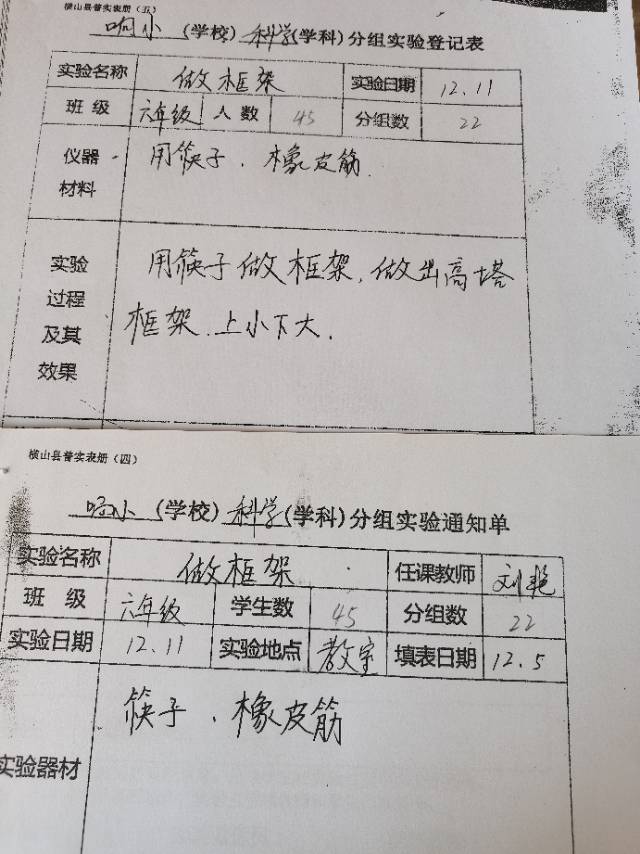 横山县普实表册（五）
响小（学校）科学（学科）分组实验登记表
实验名称 做框架 实验日期 12.11
班 级 六年级 人 数 45 分组数 22
仪器材料 用筷子、橡皮筋.
实验过程及其效果 用筷子做框架,做出高塔
框架.上小下大.
横山县普实表册（四）
响小（学校）科学（学科）分组实验通知单
实验名称 做框架 任课教师 刘艳
班 级 六年级 学生数 45 分组数 22
实验日期 12.11 实验地点 教室 填表日期 12.5
实验器材 筷子、橡皮筋